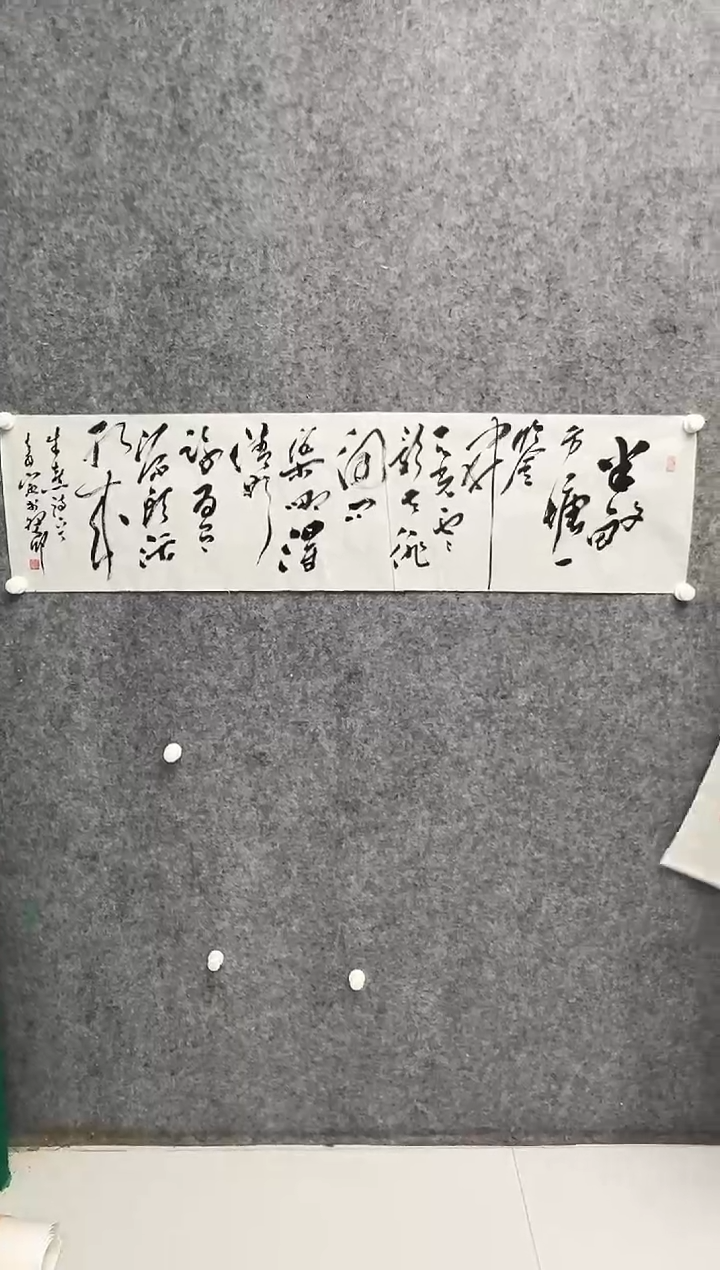 半畝
方塘一
鉴
开
天光云
影共徘
徊问
渠那得
清如
许为有
源头活
水来
朱熹诗一首